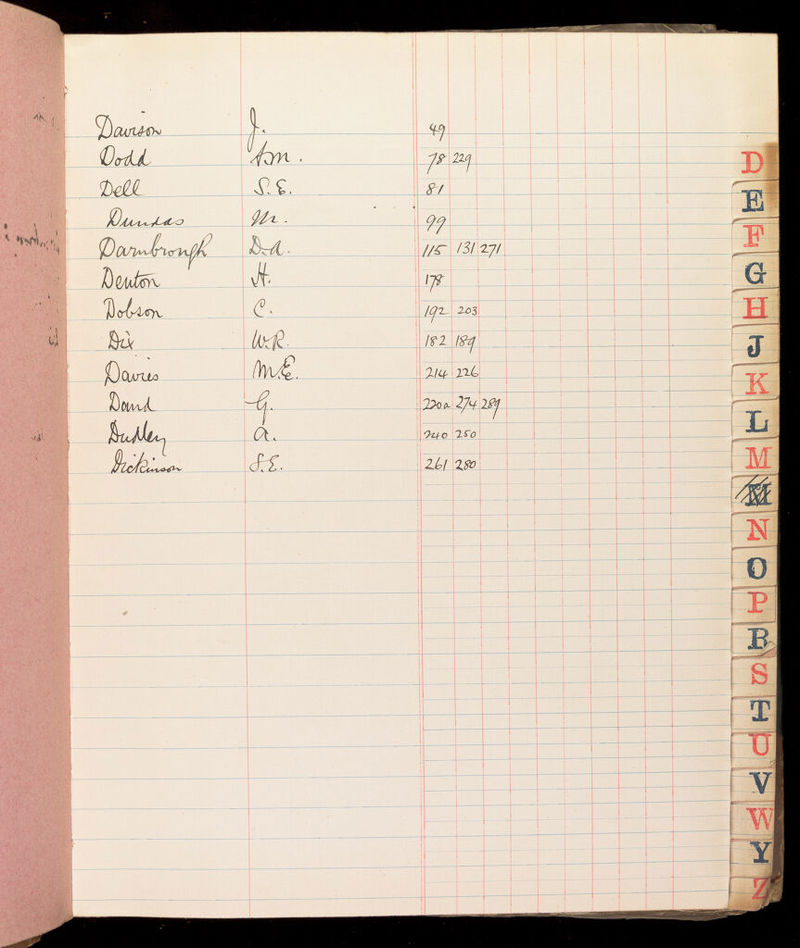 Davison J. 49
Dodd A.M. 78 229
Dell S.E. 81
Dundas M. 99
Darnbrough D.A. 115 131 271
Denton H. 178
Dobson C. 192 203
Dix W.R. 182 189
Davies M.E. 214 226
Dand G. 220a 274 289
Dudley A. 240 250
Dickinson S.E. 261 280
D
E
F
G
H
J
K
L
M
M
N
O
P
R
S
T
U
V
W
Y
Z